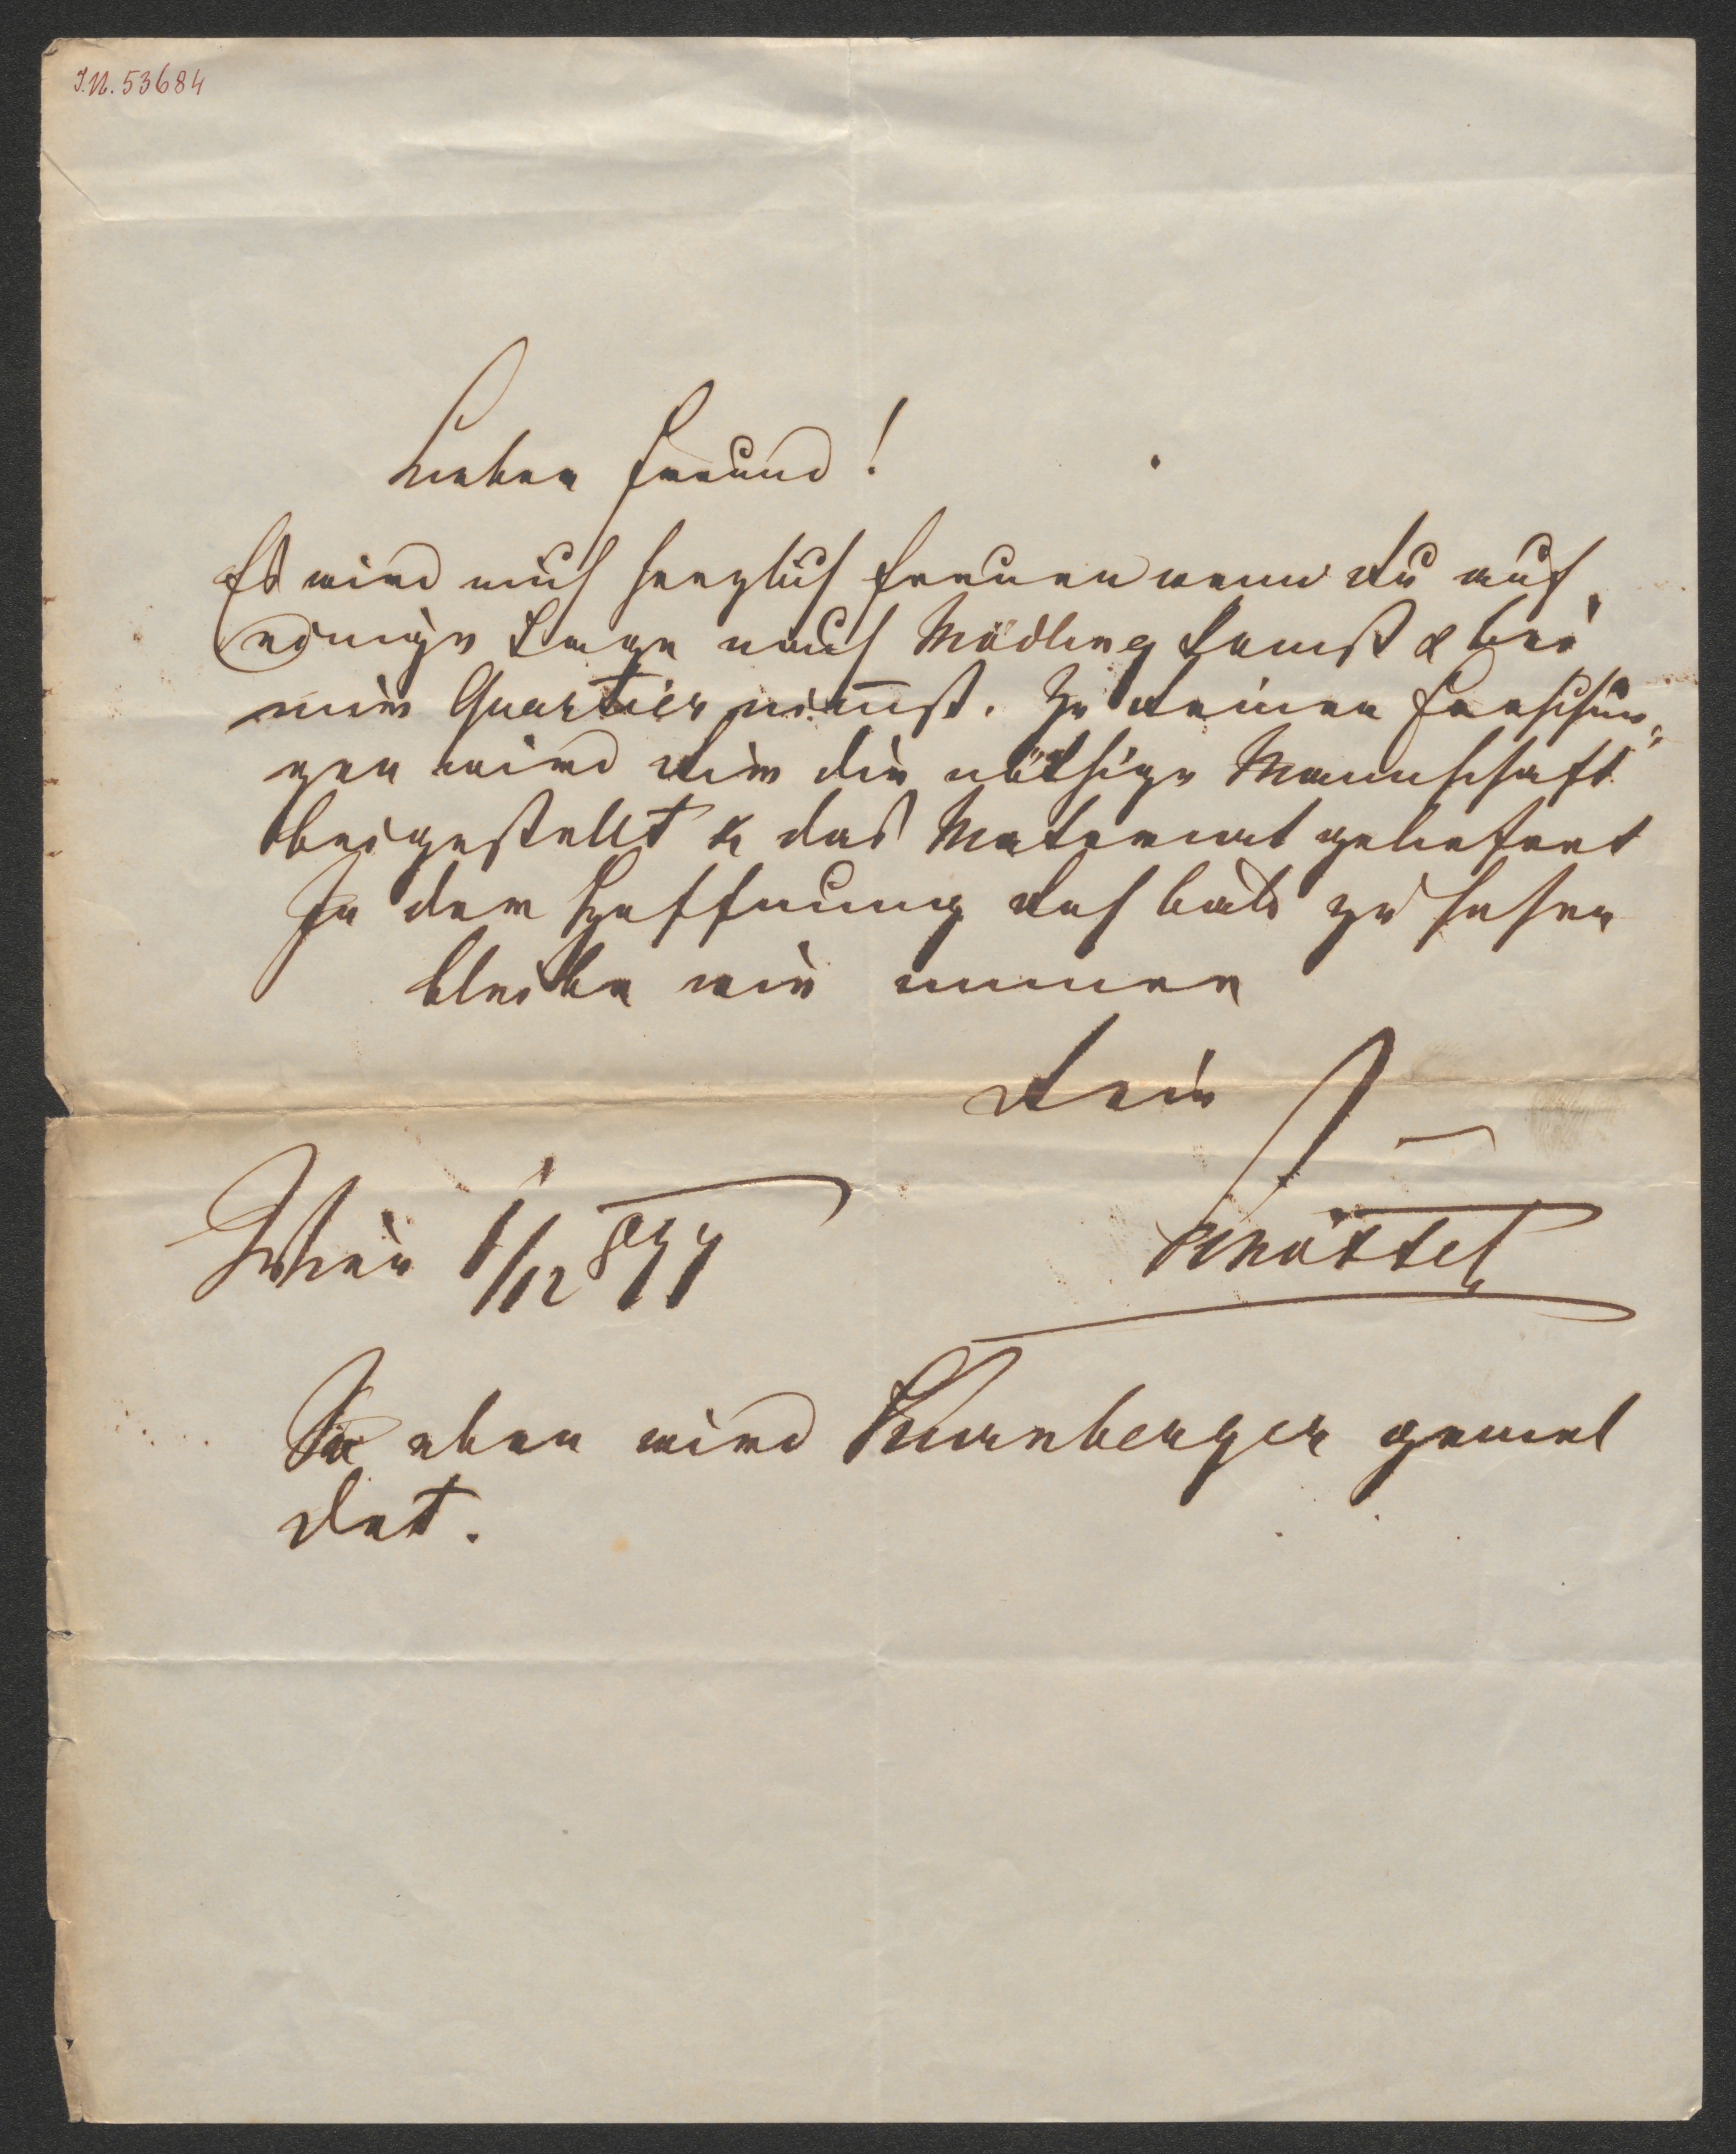 I.N. 53684
Lieber Freund!
Es wird mich herzlich freuen wenn du auf
einige Tage nach Mödling komst & bei
mir Quartier nim̅st. Zu deinen Forschun,
gen wird dir die nöthige Mannschaft
beigestellt & das Material geliefert
In der Hoffnung dich bald zu sehen
bleibe wie immer
dein
Wien 1/12 877
So eben wird Kürnberger gemel
det.